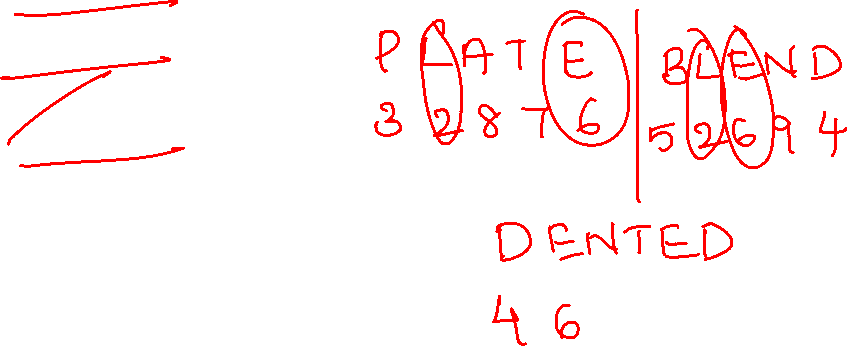 PLATE | BLEND
32876 | 52694
DENTED
46